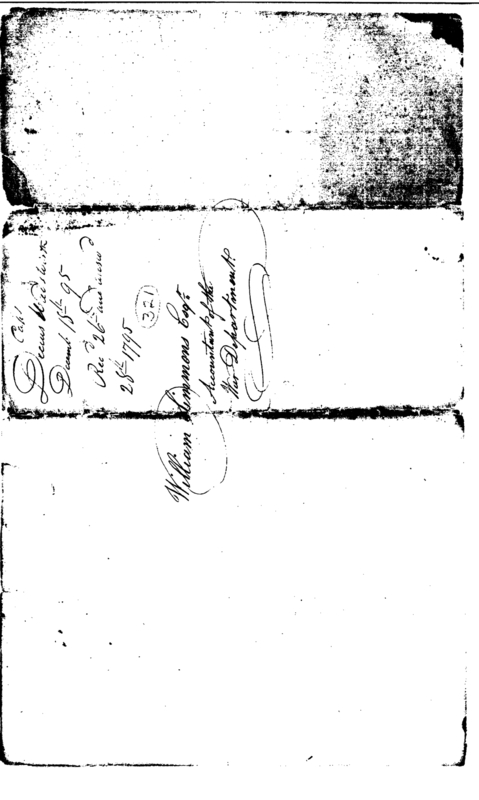 Capt
Decius Wadsworth
Decemb 15th 95
Recd 26th and answd
28th 1795
321
William Simmons Esqr
Accountant of the
War Department